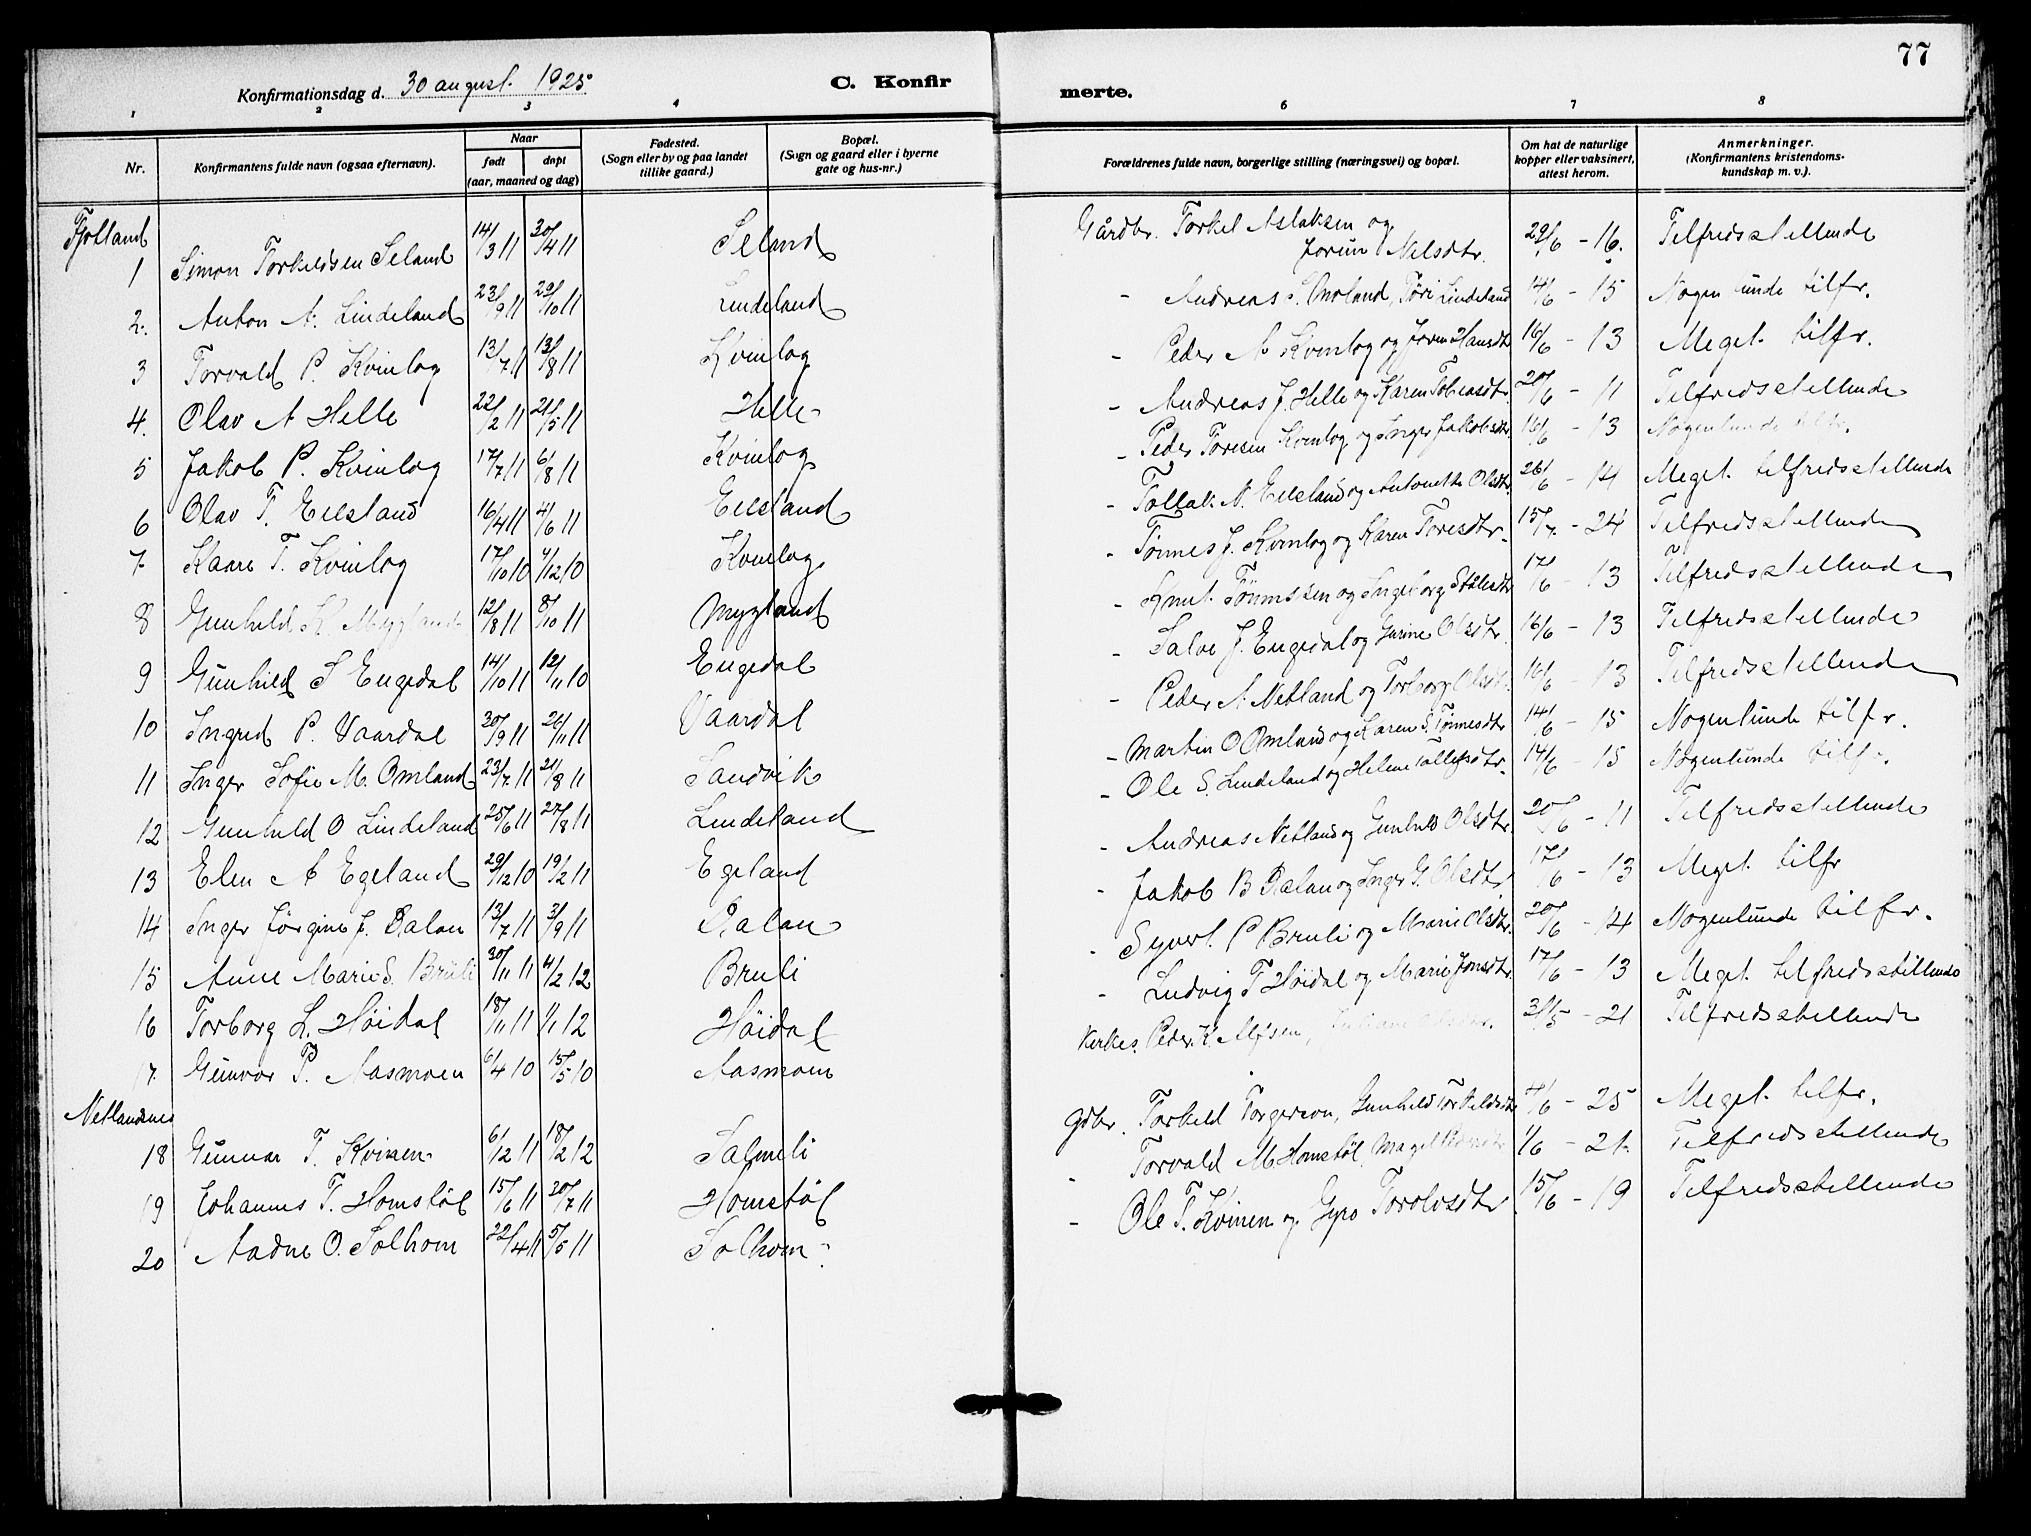 77
Konfirmationsdag d. 30 august. 1925
C. Konfirmerte.
1 2 3 4 6 7 8
Nr. | Konfirmantens fulde navn (ogsaa efternavn). | Naar født | døpt (aar, maaned og dag) | Fødested. (Sogn eller by og paa landet tillike gaard.) | Bopæl. (Sogn og gaard eller i byerne gate og hus-nr.) | Forældrenes fulde navn, borgerlige stilling (næringsvei) og bopæl. | Om hat de naturlige kopper eller vaksinert, attest herom. | Anmerkninger. (Konfirmantens kristendoms-kundskap m. v.).
Fjotland
1 Simon Torkeldsen Seland 14/3 11 30/4 11 Seland Gårdbr. Torkel Aslaksen og Jorun Nilsdtr. 29/6 - 16. Tilfredsstillende
2. Anton A. Lindeland 23/9 11 29/10 11 Lindeland - Andreas S. Omland, Tøri Lindeland 14/6 - 15 Nogenlunde tilfr.
3 Torvald P. Kvinlog 13/7 11 13/8 11 Kvinlog - Peder A. Kvinlog og Joren Hansdtr 16/6 - 13 Meget tilfr.
4. Olav A Helle 22/2 11 21/5 11 Helle - Andreas J. Helle og Karen Tobiasdtr 20/6 - 11 Tilfredsstillende
5 Jakob P. Kvinlog 17/7 11 6/8 11 Kvinlog - Peder Toresen Kvinlog og Inger Jakobsdtr 16/6 - 13 Nogenlunde tilfr.
6 Olav T. Eilsland 16/4 11 4/6 11 Eilsland - Tollak N. Eilsland og Antonette Olsdtr 26/6 - 14 Meget tilfredsstillende
7 Kaare T. Kvinlog 17/10 10 4/12 10 Kvinlog - Tønnes J. Kvinlog og Karen Toresdtr. 15/7 - 24 Tilfredsstillende
8 Gunhild K. Mygland 12/8 11 8/10 11 Mygland - Knut Tønnessen og Ingeborg Ståledtr 17/6 - 13 Tilfredsstillende
9 Gunhild S Engedal 14/10 11 12/11 10 Engedal - Salve J. Engedal og Gurine Olsdtr 16/6 - 13 Tilfredsstillende
10 Ingred P. Vaardal 30/9 11 26/11 11 Vaardal - Peder A. Netland og Torborg Olsdtr 16/6 - 13 Tilfredsstillende
11 Inger Sofie M. Omland 23/7 11 21/8 11 Sandvik - Martin O Omland og Karen S. Tønnesdtr 14/6 - 15 Nogenlunde tilfr.
12 Gunhild O Lindeland 25/6 11 27/8 11 Lindeland - Ole S. Lindeland og Helene Tallefsdtr. 14/6 - 15 Nogenlunde tilfr.
13 Elen A Egeland 29/12 10 19/2 11 Egeland - Andreas Netland og Gunhild Olsdtr 20/6 - 11 Tilfredsstillende
14 Inger Jørgine J. Dalan 13/7 11 3/9 11 Dalan - Jakob B Dalan og Inger G. Olsdtr 17/6 - 13 Meget tilfr
15 Anne Marie S. Bruli 30/11 11 4/2 12 Bruli - Syvert P Bruli og Marie Olsdtr. 20/6 - 14 Nogenlunde tilfr.
16 Torborg L. Høidal 18/11 11 1/1 12 Høidal - Ludvig T Høidal og Marie Jonsdtr. 17/6 - 13 Meget tilfredsstillende
17. Gunvor P. Aasmoen 6/4 10 15/5 10 Aasmoen Kirkes. Peder K. Alfsen, 31/5 - 21 Tilfredsstillende
Netlandsnes
18 Gunnar T. Kvinen 6/12 11 18/2 12 Salmeli Gdbr. Torkeld Torgerson, Gunhild Torkeldsdtr 4/6 - 25 Meget tilfr.
19 Johannes T. Homstøl 15/6 11 30/7 11 Homstøl - Torvald M Homstøl, 1/6 - 21. Tilfredsstillende
20 Aadne O. Solhom 22/4 11 5/5 11 Solhom - Ole T. Kvinen og Gyro Torolvsdtr 15/6 - 19 Tilfredsstillende